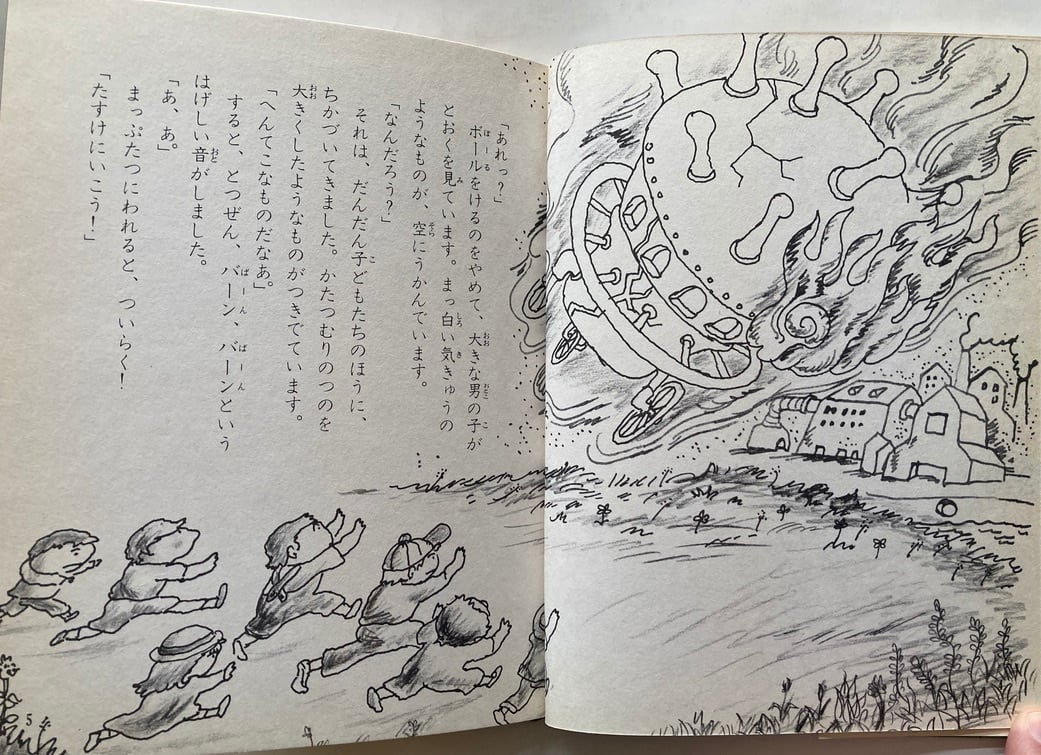 「あれっ？」
ボールをけるのをやめて、大きな男の子が
とおくを見ています。まっ白い気きゅうの
ようなものが、空にうかんでいます。
「なんだろう？」
それは、だんだん子どもたちのほうに、
ちかづいてきました。かたつむりのつのを
大きくしたようなものがつきでています。
「へんてこなものだなあ。」
すると、とつぜん、バーン、バーンという
はげしい音がしました。
「あ、あ。」
まっぷたつにわれると、ついらく！
「たすけにいこう！」
5